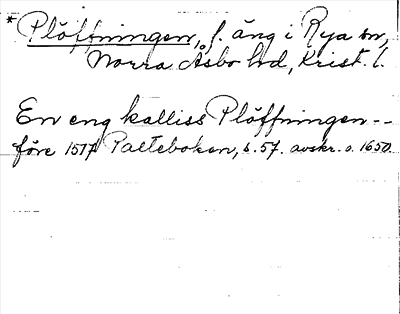 *Plöffningen, f. äng i Rya sn,
Norra Åsbo hd, Krist. l.
En eng kalliss Plöffningen --
före 1517 Palteboken, s. 57. avskr. o. 1650.